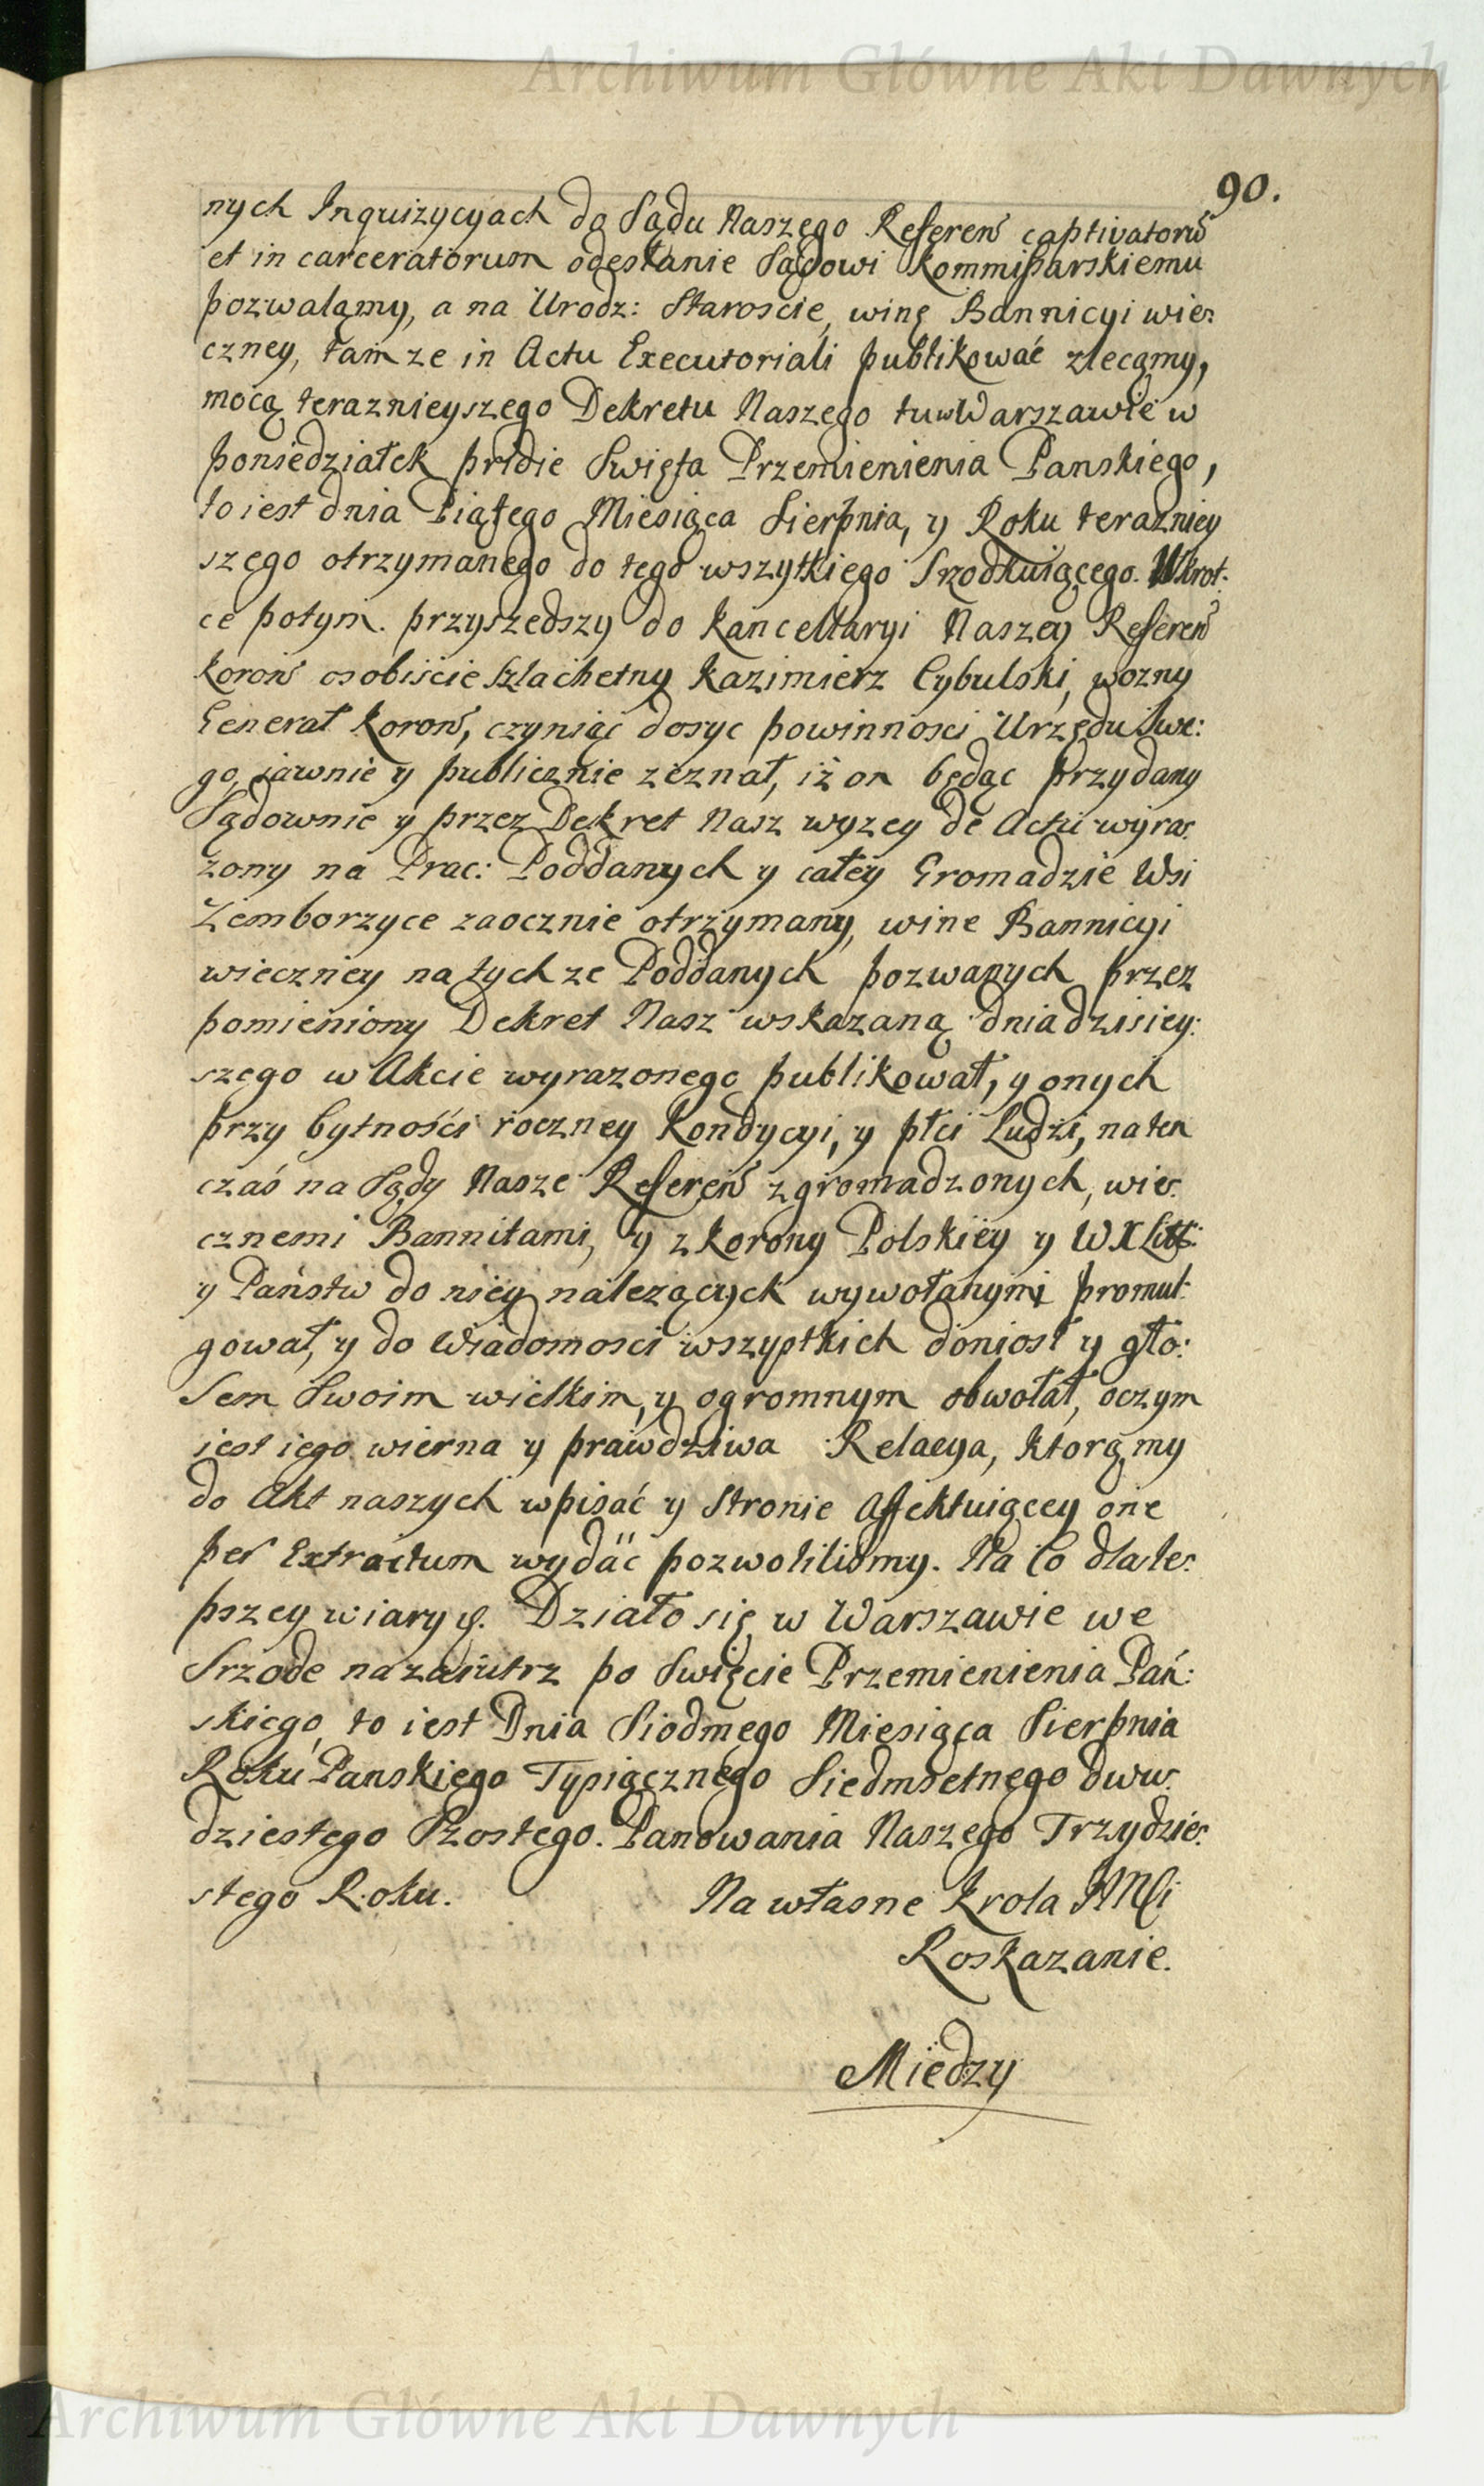 Archiwum Główne Akt Dawnych
90.
nych Inquizycyach do Sądu Naszego Referen captivatorū
et in carceratorum odesłanie Sądowi Kommissarskiemu
pozwalamy, a na Urodz: Staroscie, winę Bannicyi wie:
czney, tamze in Actu Executoriali publikować zlecamy,
mocą teraznieyszego Dekretu Naszego tu w Warszawie w
poniedziałek pridie Swięta Przemienienia Panskiego,
to iest dnia Piątego Miesiąca Sierpnia, y Roku terazniey
szego otrzymanego do tego wszytkiego Srzodkuiącego. Wkrot:
ce potym przyszedszy do Kancellaryi Naszey Referen
Koron osobiscie Szlachetny Kazimierz Cybulski, wozny
Generał Koron, czyniąc dosyc powinnosci Urzędu Swe:
go, jawnie y publicznie zeznał, iż on będąc przydany
Sądownie y przez Dekret Nasz wyzey de Actu wyra:
zony na Prac: Poddanych y całey Gromadzie Wsi
Zemborzyce zaocznie otrzymany, wine Bannicyi
wieczney na tych ze Poddanych pozwanych przez
pomieniony Dekret Nasz wskazaną dnia dzisiey:
szego w Akcie wyrazonego publikował, y onych
przy bytności roczney Kondycyi, y płci Ludzi, na ten
czas na Sądy Nasze Referen zgromadzonych, wie:
cznemi Bannitami, y z Korony Polskiey y W X Litt:
y Państw do niey nalezących wywołanymi promul:
gował, y do Wiadomosci wszystkich doniosł y gło:
sem Swoim wielkim, y ogromnym obwołał, oczym
iest iego wierna y prawdziwa Relacya, ktorą my
do Akt naszych wpisać y Stronie Affektuiącey one
per Extractum wydać pozwoliliśmy. Na Co dla le:
pszey wiary &. Działo się w Warszawie we
Srzode nazaiutrz po Swięcie Przemienienia Pań:
skiego, to iest Dnia Siodmego Miesiąca Sierpnia
Roku Panskiego Tysiącznego Siedmsetnego dwu:
dziestego Szostego. Panowania Naszego Trzydzie:
stego Roku. Na własne Krola JMCi
Roskazanie.
Miedzy
Archiwum Główne Akt Dawnych